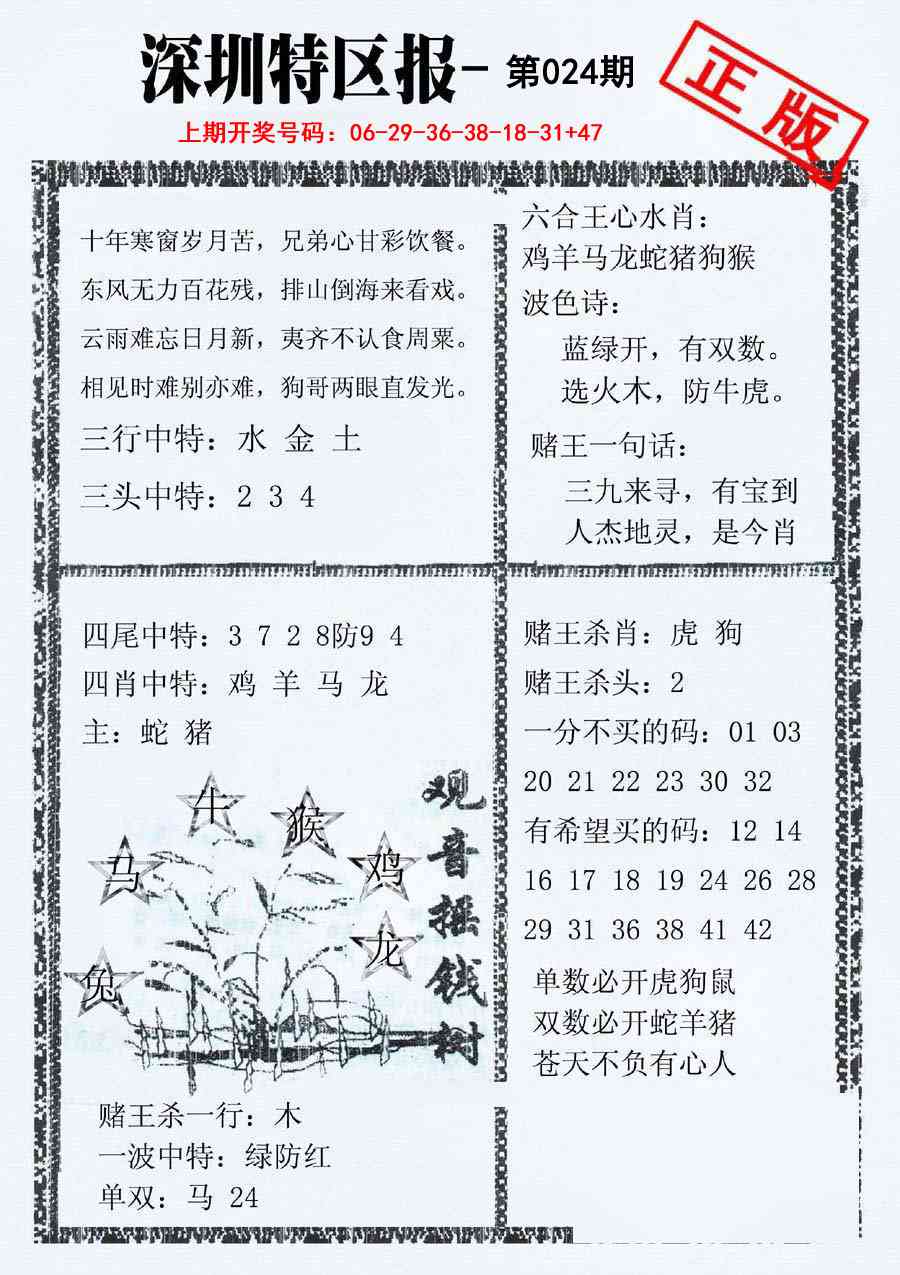 深圳特区报- 第024期
正版
上期开奖号码：06-29-36-38-18-31+47
十年寒窗岁月苦，兄弟心甘彩饮餐。
东风无力百花残，排山倒海来看戏。
云雨难忘日月新，夷齐不认食周粟。
相见时难别亦难，狗哥两眼直发光。
三行中特：水 金 土
三头中特：2 3 4
六合王心水肖：
鸡羊马龙蛇猪狗猴
波色诗：
蓝绿开，有双数。
选火木，防牛虎。
赌王一句话：
三九来寻，有宝到
人杰地灵，是今肖
四尾中特：3 7 2 8防9 4
四肖中特：鸡 羊 马 龙
主：蛇 猪
牛
猴
马
鸡
龙
兔
观音摇钱树
赌王杀一行：木
一波中特：绿防红
单双：马 24
赌王杀肖：虎 狗
赌王杀头：2
一分不买的码：01 03
20 21 22 23 30 32
有希望买的码：12 14
16 17 18 19 24 26 28
29 31 36 38 41 42
单数必开虎狗鼠
双数必开蛇羊猪
苍天不负有心人